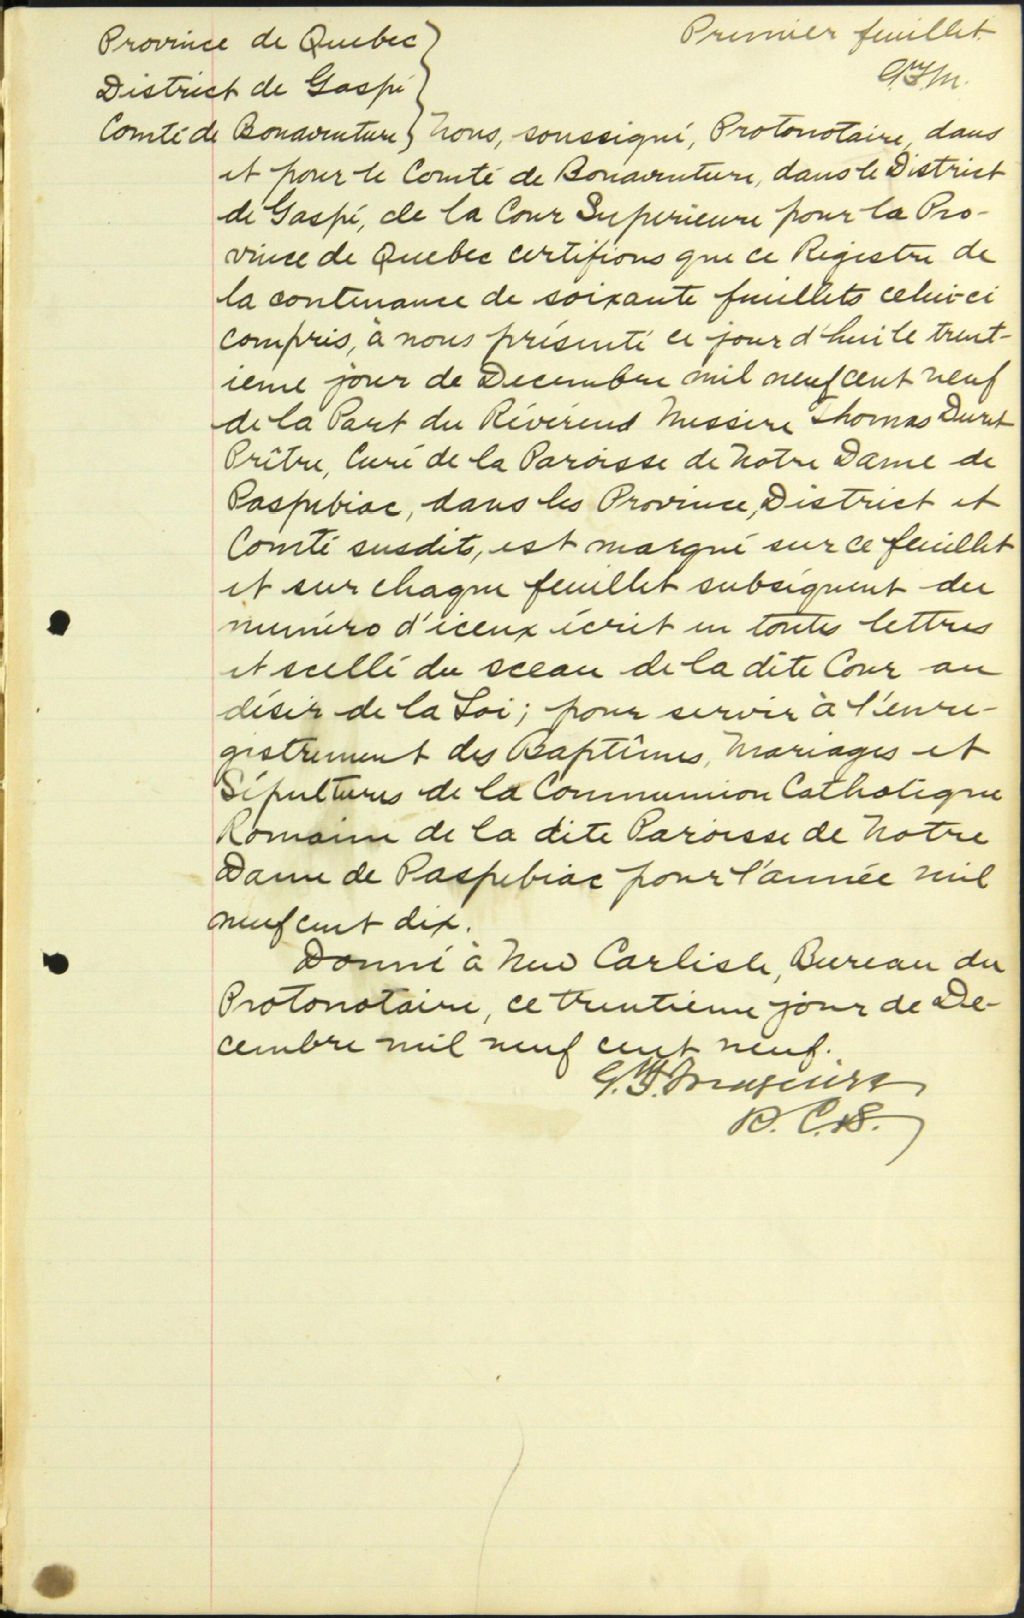 Premier feuillet.
G.F.M.
Province de Quebec
District de Gaspé
Comté de Bonaventure } Nous, soussigné, Protonotaire, dans
et pour le Comté de Bonaventure, dans le District
de Gaspé, de la Cour Superieure pour la Pro-
vince de Quebec certifions que ce Registre de
la contenance de soixante feuillets celui-ci
compris, à nous présenté ce jour d'hui le trent-
ieme jour de Decembre mil neuf cent neuf
de la Part du Révérend Messire Thomas
Prêtre, Curé de la Paroisse de Notre Dame de
Paspebiac, dans les Province, District et
Comté susdits, est marqué sur ce feuillet
et sur chaque feuillet subséquent du
numéro d'iceux écrit en toutes lettres
et scellé du sceau de la dite Cour au
désir de la Loi; pour servir à l'enre-
gistrement des Baptêmes, Mariages et
Sépultures de la Communion Catholique
Romaine de la dite Paroisse de Notre
Dame de Paspebiac pour l'année mil
neuf cent dix.
Donné à New Carlisle, Bureau du
Protonotaire, ce trentieme jour de De-
cembre mil neuf cent neuf.
G. F. Maguire
P. C. S.